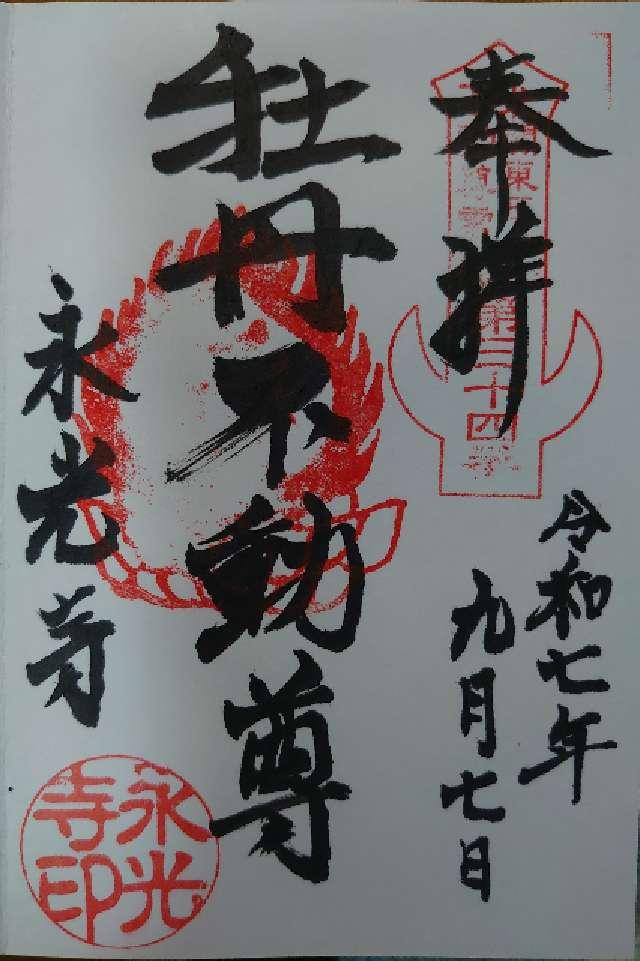 奉拝
令和七年
九月七日
牡丹不動尊
永光寺
永光
寺印